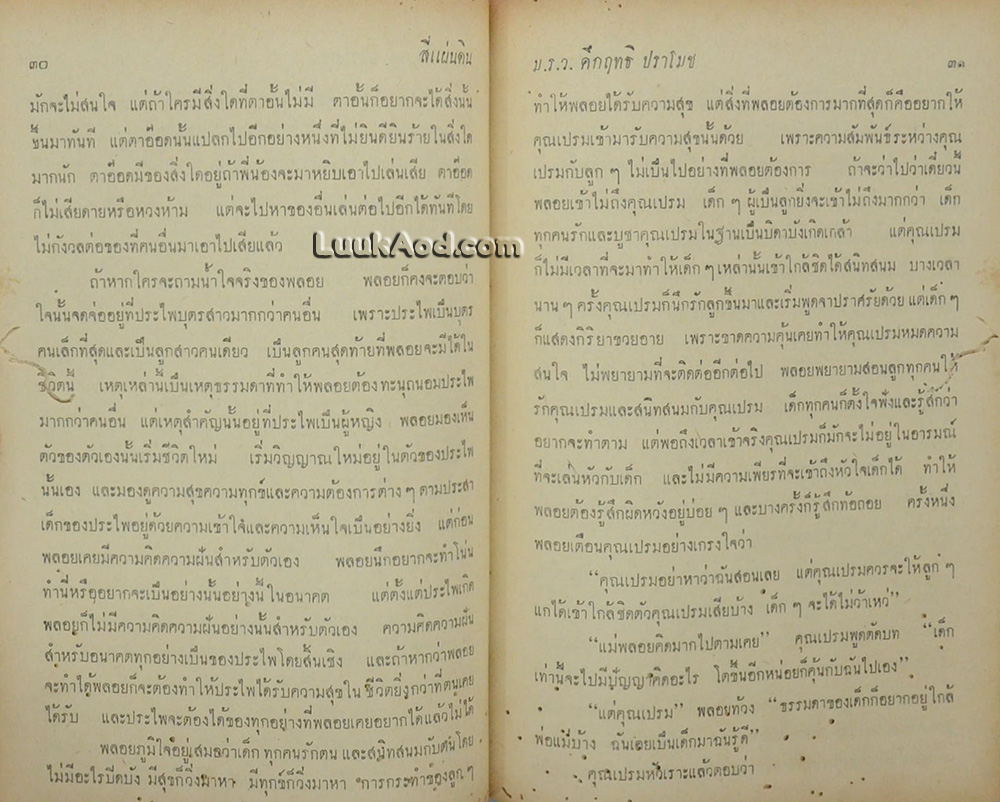 ๓๐
สี่แผ่นดิน
มักจะไม่สนใจ แต่ถ้าใครมีสิ่งใดที่ตาอั้นไม่มี ตาอั้นก็อยากจะได้สิ่งนั้น
ขึ้นมาทันที แต่ตาอ๊อดนั้นแปลกไปอีกอย่างหนึ่งที่ไม่ยินดียินร้ายในสิ่งใด
มากนัก ตาอ๊อดมีของสิ่งใดอยู่ถ้าพี่น้องจะมาหยิบเอาไปเล่นเสีย ตาอ๊อด
ก็ไม่เสียดายหรือหวงห้าม แต่จะไปหาของอื่นเล่นต่อไปอีกได้ทันทีโดย
ไม่กังวลต่อของที่คนอื่นมาเอาไปเสียแล้ว
ถ้าหากใครจะถามน้ำใจจริงของพลอย พลอยก็คงจะตอบว่า
ใจนั้นจดจ่ออยู่ที่ประไพบุตรสาวมากกว่าคนอื่น เพราะประไพเป็นบุตร
คนเล็กที่สุดและเป็นลูกสาวคนเดียว เป็นลูกคนสุดท้ายที่พลอยจะมีได้ใน
ชีวิตนี้ เหตุเหล่านี้เป็นเหตุธรรมดาที่ทำให้พลอยต้องทะนุถนอมประไพ
มากกว่าคนอื่น แต่เหตุสำคัญนั้นอยู่ที่ประไพเป็นผู้หญิง พลอยมองเห็น
ตัวของตัวเองนั้นเริ่มชีวิตใหม่ เริ่มวิญญาณใหม่อยู่ในตัวของประไพ
นั้นเอง และมองดูความสุขความทุกข์และความต้องการต่าง ๆ ตามประสา
เด็กของประไพอยู่ด้วยความเข้าใจและความเห็นใจเป็นอย่างยิ่ง แต่ก่อน
พลอยเคยมีความคิดความฝันสำหรับตัวเอง พลอยนึกอยากจะทำโน่น
ทำนี่หรืออยากจะเป็นอย่างนั้นอย่างนี้ในอนาคต แต่ตั้งแต่ประไพเกิด
พลอยก็ไม่มีความคิดความฝันอย่างนั้นสำหรับตัวเอง ความคิดความฝัน
สำหรับอนาคตทุกอย่างเป็นของประไพโดยสิ้นเชิง และถ้าหากว่าพลอย
จะทำได้พลอยก็จะต้องทำให้ประไพได้รับความสุขในชีวิตยิ่งกว่าที่ตนเคย
ได้รับ และประไพจะต้องได้ของทุกอย่างที่พลอยเคยอยากได้แล้วไม่ได้
พลอยภูมิใจอยู่เสมอว่าเด็กทุกคนรักตน และสนิทสนมกับตนโดย
ไม่มีอะไรปิดบัง มีสุขก็วิ่งมาหา มีทุกข์ก็วิ่งมาหา การกระทำของลูก ๆ
ม.ร.ว. คึกฤทธิ์ ปราโมช
๓๑
ทำให้พลอยได้รับความสุข แต่สิ่งที่พลอยต้องการมากที่สุดก็คืออยากให้
คุณเปรมเข้ามารับความสุขนั้นด้วย เพราะความสัมพันธ์ระหว่างคุณ
เปรมกับลูก ๆ ไม่เป็นไปอย่างที่พลอยต้องการ ถ้าจะว่าไปว่าเดี๋ยวนี้
พลอยเข้าไม่ถึงคุณเปรม เด็ก ๆ ผู้เป็นลูกยิ่งจะเข้าไม่ถึงมากกว่า เด็ก
ทุกคนรักและบูชาคุณเปรมในฐานะเป็นบิดาบังเกิดเกล้า แต่คุณเปรม
ก็ไม่มีเวลาที่จะมาทำให้เด็ก ๆ เหล่านั้นเข้าใกล้ชิดได้สนิทสนม บางเวลา
นาน ๆ ครั้งคุณเปรมก็นึกรักลูกขึ้นมาและเริ่มพูดจาปราศรัยด้วย แต่เด็ก ๆ
ก็แสดงกิริยาขวยอาย เพราะขาดความคุ้นเคยทำให้คุณเปรมหมดความ
สนใจ ไม่พยายามที่จะติดต่ออีกต่อไป พลอยพยายามสอนลูกทุกคนให้
รักคุณเปรมและสนิทสนมกับคุณเปรม เด็กทุกคนก็ตั้งใจฟังและรู้สึกว่า
อยากจะทำตาม แต่พอถึงเวลาเข้าจริงคุณเปรมก็มักจะไม่อยู่ในอารมณ์
ที่จะเล่นหัวกับเด็ก และไม่มีความเพียรที่จะเข้าถึงหัวใจเด็กได้ ทำให้
พลอยต้องรู้สึกผิดหวังอยู่บ่อย ๆ และบางครั้งก็รู้สึกท้อถอย ครั้งหนึ่ง
พลอยเตือนคุณเปรมอย่างเกรงใจว่า
“คุณเปรมอย่าหาว่าฉันสอนเลย แต่คุณเปรมควรจะให้ลูก ๆ
แกได้เข้าใกล้ชิดตัวคุณเปรมเสียบ้าง เด็ก ๆ จะได้ไม่ว้าเหว่”
“แม่พลอยคิดมากไปตามเคย” คุณเปรมพูดตัดบท “เด็ก
เท่านี้จะไปมีปัญญาคิดอะไร โตขึ้นอีกหน่อยก็คุ้นกับฉันไปเอง”
“แต่คุณเปรม” พลอยท้วง “ธรรมดาของเด็กก็อยากอยู่ใกล้
พ่อแม่บ้าง ฉันเคยเป็นเด็กมาฉันรู้ดี”
คุณเปรมหัวเราะแล้วตอบว่า
LuukAod.com